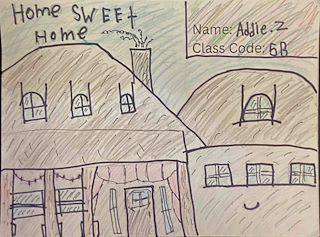 Home SWEEt
Home
Name: Addie.Z
Class Code: 5B